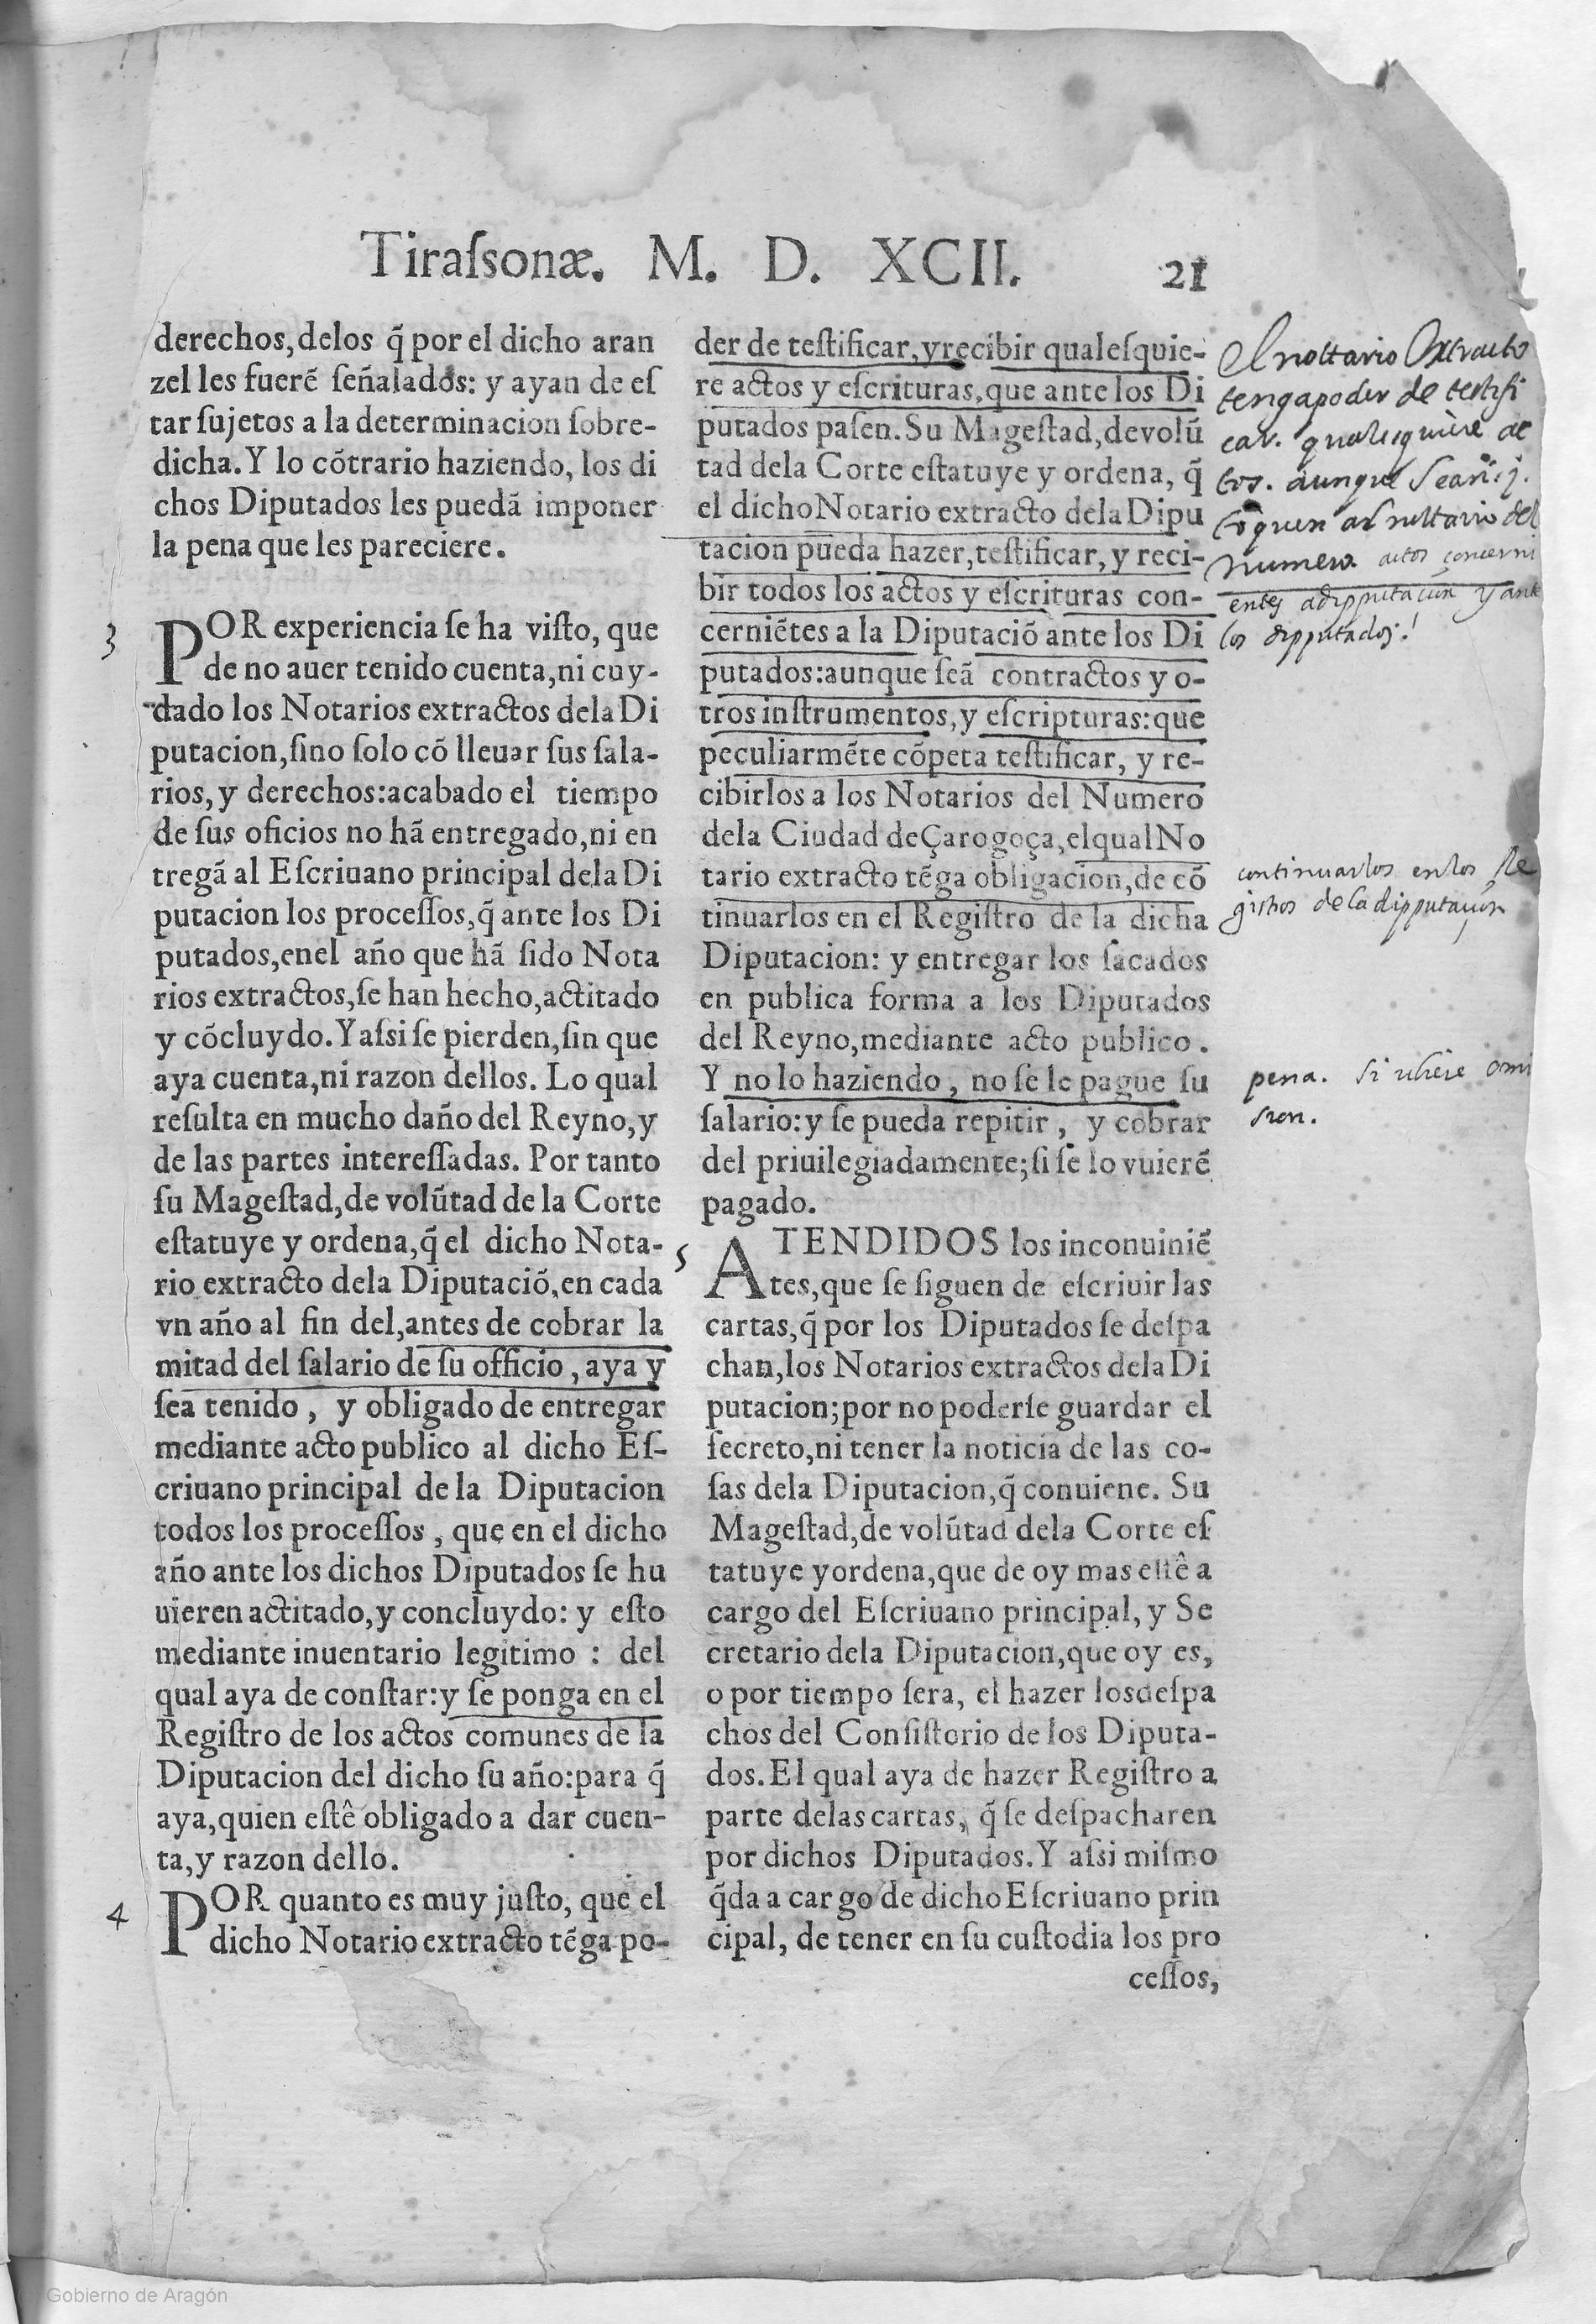 Tiraſsonæ. M. D. XCII. 21
derechos, delos q̃ por el dicho aran
zel les fuerẽ ſeñalados: y ayan de eſ
tar ſujetos a la determinacion ſobre-
dicha. Y lo cõtrario haziendo, los di
chos Diputados les puedã imponer
la pena que les pareciere.
3
POR experiencia ſe ha viſto, que
de no auer tenido cuenta, ni cuy-
dado los Notarios extractos dela Di
putacion, ſino ſolo cõ lleuar ſus ſala-
rios, y derechos: acabado el tiempo
de ſus oficios no hã entregado, ni en
tregã al Eſcriuano principal dela Di
putacion los proceſſos, q̃ ante los Di
putados, enel año que hã ſido Nota
rios extractos, ſe han hecho, actitado
y cõcluydo. Y aſsi ſe pierden, ſin que
aya cuenta, ni razon dellos. Lo qual
reſulta en mucho daño del Reyno, y
de las partes intereſſadas. Por tanto
ſu Mageſtad, de volũtad de la Corte
eſtatuye y ordena, q̃ el dicho Nota-
rio extracto dela Diputaciõ, en cada
vn año al fin del, antes de cobrar la
mitad del ſalario de ſu officio, aya y
ſea tenido, y obligado de entregar
mediante acto publico al dicho Eſ-
criuano principal de la Diputacion
todos los proceſſos, que en el dicho
año ante los dichos Diputados ſe hu
uieren actitado, y concluydo: y eſto
mediante inuentario legitimo: del
qual aya de conſtar: y ſe ponga en el
Regiſtro de los actos comunes de la
Diputacion del dicho ſu año: para q̃
aya, quien eſtê obligado a dar cuen-
ta, y razon dello.
4
POR quanto es muy juſto, que el
dicho Notario extracto tẽga po-
der de teſtificar, y recibir qualeſquie-
re actos y eſcrituras, que ante los Di
putados paſen. Su Mageſtad, de volũ
tad dela Corte eſtatuye y ordena, q̃
el dicho Notario extracto dela Dipu
tacion pueda hazer, teſtificar, y reci-
bir todos los actos y eſcrituras con-
cerniẽtes a la Diputaciõ ante los Di
putados: aunque ſeã contractos y o-
tros inſtrumentos, y eſcripturas: que
peculiarmẽte cõpeta teſtificar, y re-
cibirlos a los Notarios del Numero
dela Ciudad de Çarogoça, elqual No
tario extracto tẽga obligacion, de cõ
tinuarlos en el Regiſtro de la dicha
Diputacion: y entregar los ſacados
en publica forma a los Diputados
del Reyno, mediante acto publico.
Y no lo haziendo, no ſe le pague ſu
ſalario: y ſe pueda repitir, y cobrar
del priuilegiadamente; ſi ſe lo vuierẽ
pagado.
5
ATENDIDOS los inconuiniẽ
tes, que ſe ſiguen de eſcriuir las
cartas, q̃ por los Diputados ſe deſpa
chan, los Notarios extractos dela Di
putacion; por no poderſe guardar el
ſecreto, ni tener la noticia de las co-
ſas dela Diputacion, q̃ conuiene. Su
Mageſtad, de volũtad dela Corte eſ
tatuye y ordena, que de oy mas eſtê a
cargo del Eſcriuano principal, y Se
cretario dela Diputacion, que oy es,
o por tiempo ſera, el hazer los deſpa
chos del Conſiſtorio de los Diputa-
dos. El qual aya de hazer Regiſtro a
parte delas cartas, q̃ ſe deſpacharen
por dichos Diputados. Y aſsi miſmo
q̃da a cargo de dicho Eſcriuano prin
cipal, de tener en ſu cuſtodia los pro
ceſſos,
El nottario Extracto
tenga poder de testifi
car. qualesquiere ac
tos. aunque Sean
toquen al nottario del
numero actos concerni
entes a dipputacion y ante
los dipputados.
continuarlos en los Re
gistros de la dipputacion
pena. Si ubiere omi
sion.
Gobierno de Aragón